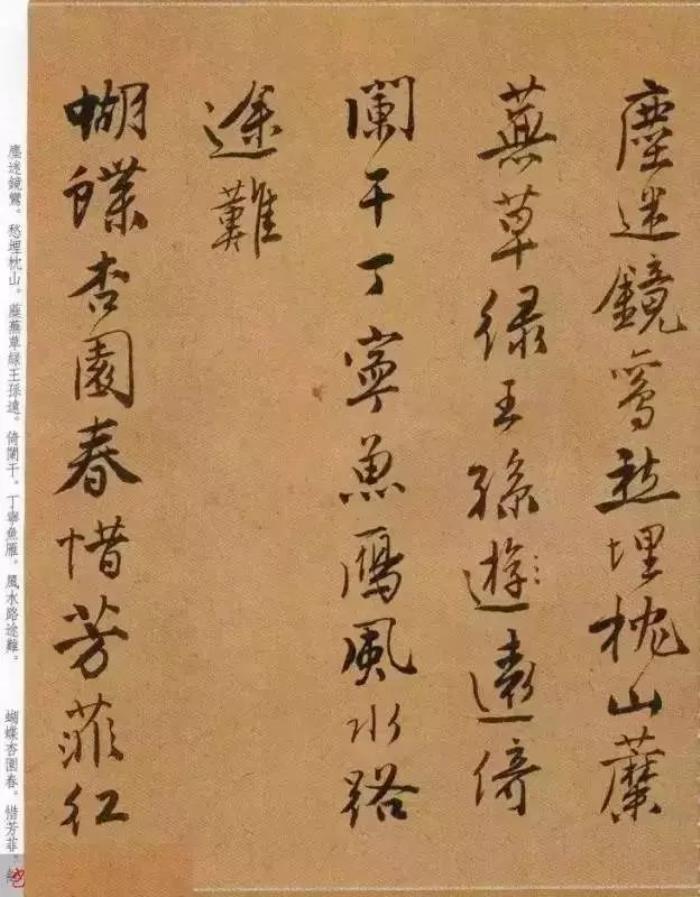 塵迷鏡鸞愁埋枕山蘼
蕪草緑王孫遊遠倚
闌干丁寧魚鴈風水路
途難
蝴蝶杏園春惜芳菲红
塵迷鏡鸞。愁埋枕山。蘼蕪草緑王孫遠。倚闌干。丁寧魚雁。風水路途難。
蝴蝶杏園春。惜芳菲。